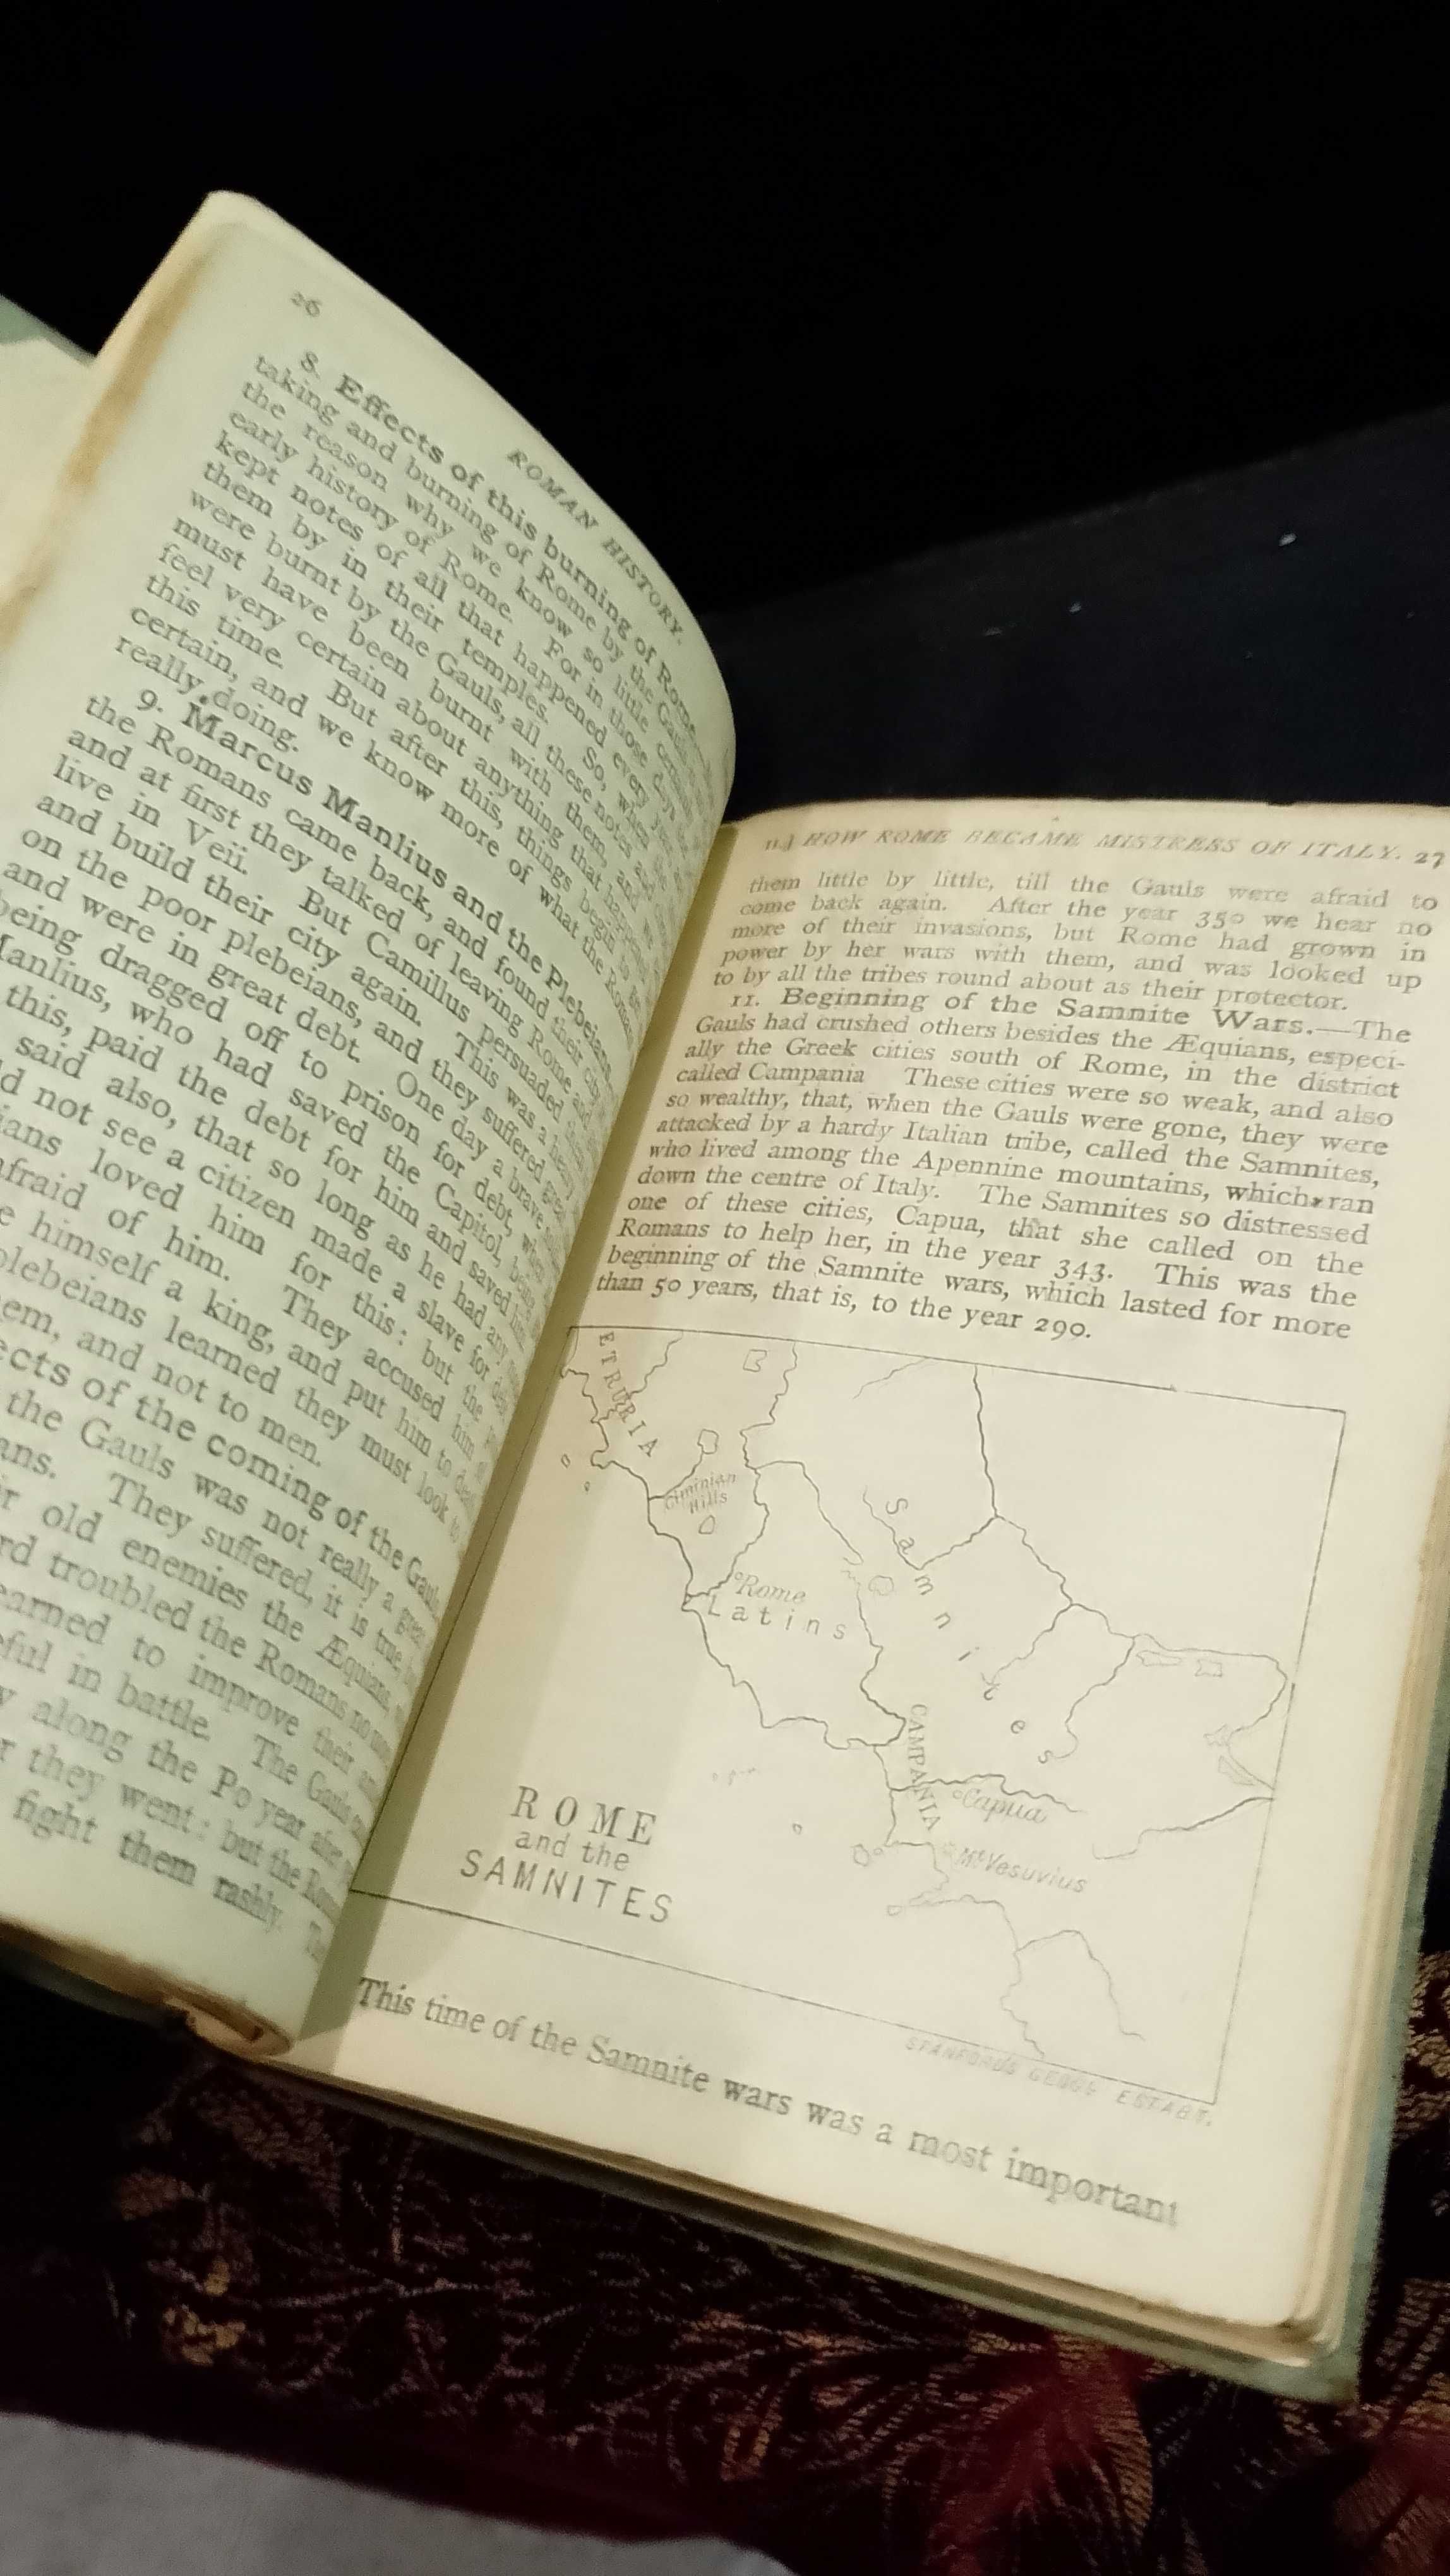 26
ROMAN HISTORY.
8. Effects of this burning of Rome.—
taking and burning of Rome by the Gauls
the reason why we know so little
early history of Rome. For in those days
kept notes of all that happened every
them by in their temples. So, when
were burnt by the Gauls, all these notes
must have been burnt with them, and
feel very certain about anything that
this time. But after this, things begin to
certain, and we know more of what the Romans
really doing.
9. Marcus Manlius and the Plebeians.
the Romans came back, and found their city
and at first they talked of leaving Rome, and
live in Veii. But Camillus persuaded
and build their city again. This was a
on the poor plebeians, and they suffered
and were in great debt. One day a brave
being dragged off to prison for debt, when
Manlius, who had saved the Capitol,
this, paid the debt for him and saved him.
said also, that so long as he had any
not see a citizen made a slave for
loved him for this: but the
afraid of him. They accused him
himself a king, and put him to
plebeians learned they must look to
and not to men.
of the coming of the Gauls
the Gauls was not really a great
They suffered, it is true,
old enemies the Æquians,
troubled the Romans no
to improve their
in battle. The Gauls
along the Po year after
they went: but the
fight them rashly.
II.] HOW ROME BECAME MISTRESS OF ITALY. 27
them little by little, till the Gauls were afraid to
come back again. After the year 350 we hear no
more of their invasions, but Rome had grown in
power by her wars with them, and was looked up
to by all the tribes round about as their protector.
11. Beginning of the Samnite Wars.—The
Gauls had crushed others besides the Æquians, especi-
ally the Greek cities south of Rome, in the district
called Campania These cities were so weak, and also
so wealthy, that, when the Gauls were gone, they were
attacked by a hardy Italian tribe, called the Samnites,
who lived among the Apennine mountains, which ran
down the centre of Italy. The Samnites so distressed
one of these cities, Capua, that she called on the
Romans to help her, in the year 343. This was the
beginning of the Samnite wars, which lasted for more
than 50 years, that is, to the year 290.
ETRURIA
Ciminian
Hills
Samnites
Rome
Latins
CAMPANIA
Capua
Mt Vesuvius
ROME
and the
SAMNITES
STANFORD'S GEOGL ESTABT.
This time of the Samnite wars was a most important